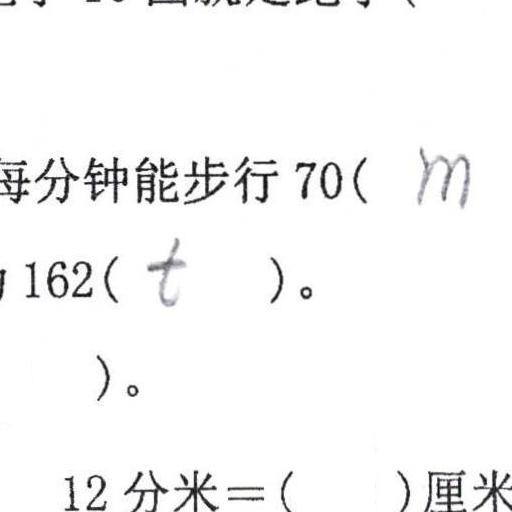 每分钟能步行 70( m
162( t )。
)。
12 分米=( )厘米